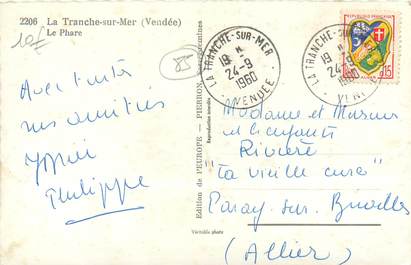 2206 La Tranche-sur-Mer (Vendée)
Le Phare
10F
85
LA TRANCHE-SUR-MER
19 H
24-9
1960
VENDÉE
LA TRANCHE
19 H
24-9
1960
VEN
REPUBLIQUE FRANÇAISE
0,15
Avec toutes
nos amitiés
Philippe
Edition de l'EUROPE - PIERRON
Reproduction interdite
Véritable photo
Madame et Monsieur
et les enfants
Rivière
"La vieille cure"
Paray sur Bruailles
(Allier)